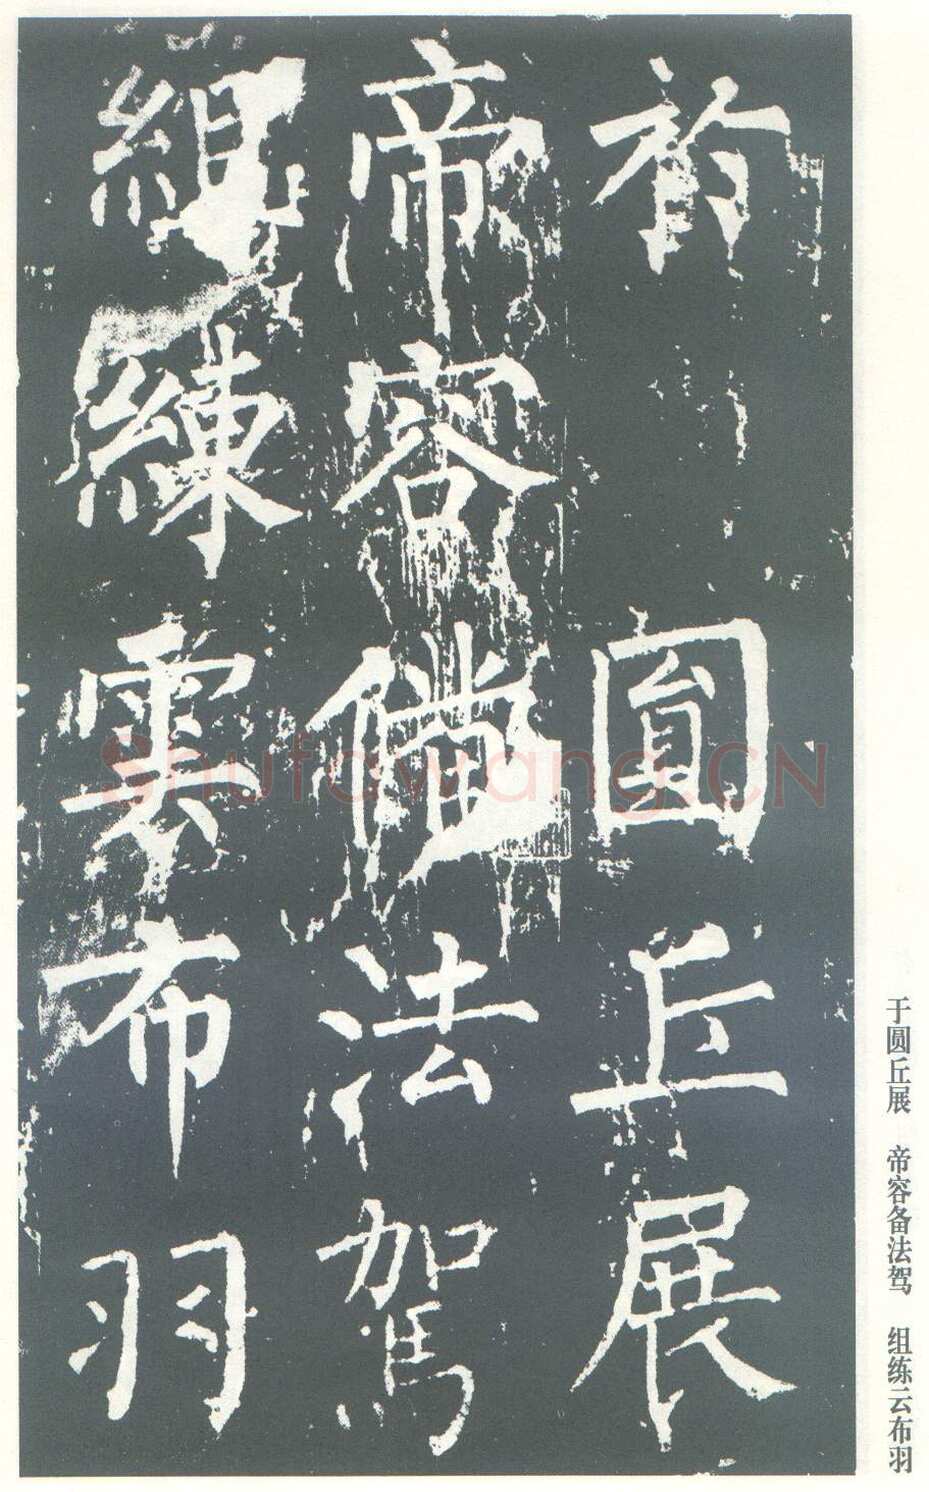 於圓丘展
帝容備法駕
組練雲布羽
于圆丘展 帝容备法驾 组练云布羽
Shufawang.CN